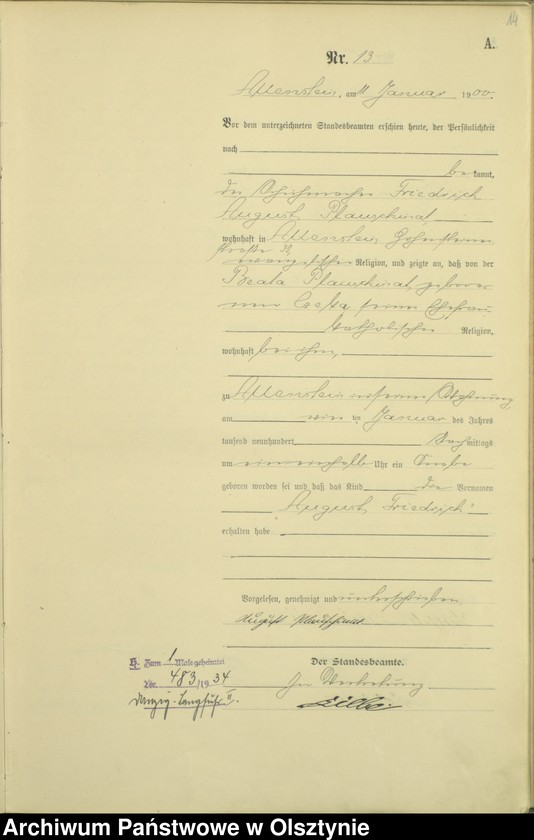 14
A.
Nr. 13
Allenstein, am 11 Januar 1900.
Vor dem unterzeichneten Standesbeamten erschien heute, der Persönlichkeit
nach
bekannt,
der Schuhmacher Friedrich
August Plauschinat
wohnhaft in Allenstein
straße
evangelischer Religion, und zeigte an, daß von der
Beata Plauschinat, gebore-
nen seiner Ehefrau
katholischer Religion,
wohnhaft bei ihm,
zu Allenstein in seiner Wohnung
am Januar des Jahres
tausend neunhundert Nachmittags
um ein einhalb Uhr ein Knabe
geboren worden sei und daß das Kind die Vornamen
August Friedrich
erhalten habe
Vorgelesen, genehmigt und unterschrieben
August Plauschinat
Der Standesbeamte.
In Vertretung
H. Zum 1 Male geheiratet
Nr. 483/1934
Danzig-Langfuhr II.
Archiwum Państwowe w Olsztynie